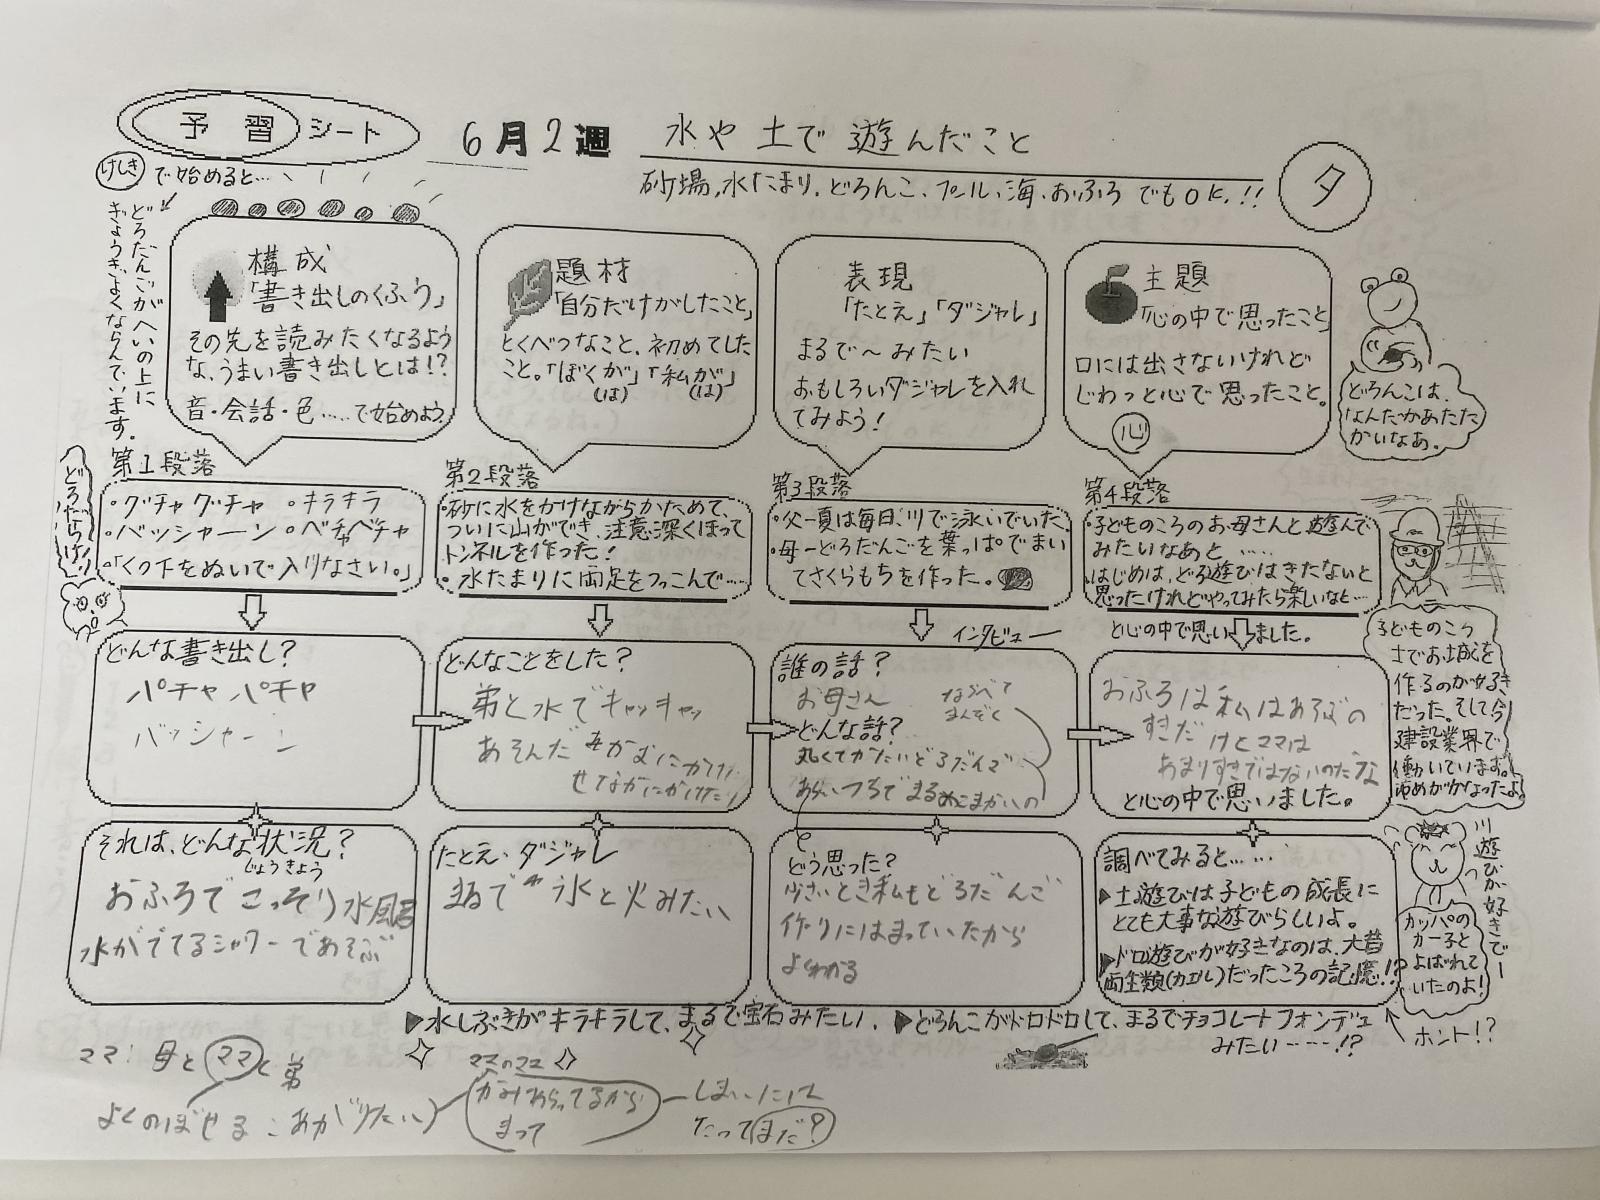 予習シート
6月2週 水や土で遊んだこと
砂場、水たまり、どろんこ、プール、海、おふろでもOK.!!
タ
けしきで始めると…
どろだんごがへいの上に
ぎょうぎよくならんでいます。
構成
「書き出しのくふう」
その先を読みたくなるよう
な、うまい書き出しとは!?
音・会話・色……で始めよう!
題材
「自分だけがしたこと」
とくべつなこと、初めてした
こと。「ぼくが」「私が」
(は) (は)
表現
「たとえ」「ダジャレ」
まるで〜みたい
おもしろいダジャレを入れ
てみよう!
主題
「心の中で思ったこと」
口には出さないけれど
じわっと心で思ったこと。
心
どろんこは、
なんだかあたた
かいなあ。
どろだらけ!
第1段落
・グチャグチャ ・キラキラ
・バッシャーーン ・ベチャベチャ
「くつ下をぬいで入りなさい。」
第2段落
・砂に水をかけながらかためて、
ついに山ができ、注意深くほって
トンネルを作った!
・水たまりに両足をつっこんで……
第3段落
・父ー夏は毎日、川で泳いでいた。
・母ーどろだんごを葉っぱでまい
てさくらもちを作った。
第4段落
・子どものころのお母さんと遊んで
みたいなあと……
はじめは、どろ遊びはきたないと
思ったけれどやってみたら楽しいなと…
と心の中で思いました。
どんな書き出し?
パチャパチャ
バッシャーン
どんなことをした?
弟と水でキャッキャッ
あそんだ
せなかにかけたり
インタビュー
誰の話?
お母さん
ならべて
まんぞく
どんな話?
丸くてかたいどろだんご
おふろは私はあそぶの
すきだけどママは
あまりすきではないのだな
と心の中で思いました。
子どものころ
土でお城を
作るのが好き
だった。そして今
建設業界で
働いています。
夢がかなったよ。
それは、どんな状況?
じょうきょう
おふろでこっそり水風呂
水がでてるシャワーであそぶ
たとえ・ダジャレ
まるで氷と火みたい
どう思った?
小さいとき私もどろだんご
作りにはまっていたから
よくわかる
調べてみると……
▶土遊びは子どもの成長に
とても大事な遊びらしいよ。
▶ドロ遊びが好きなのは、大昔
両生類(カエル)だったころの記憶!?
川遊びが好きでー
カッパの
カー子と
よばれて
いたのよ!
ホント!?
▶水しぶきがキラキラして、まるで宝石みたい。 ▶どろんこがドロドロして、まるでチョコレートフォンデュ
みたい……!?
ママ:母とママと弟
ママのママ
よくのぼせる:あがりたい
かみあらってるから
まって
たってまだ?